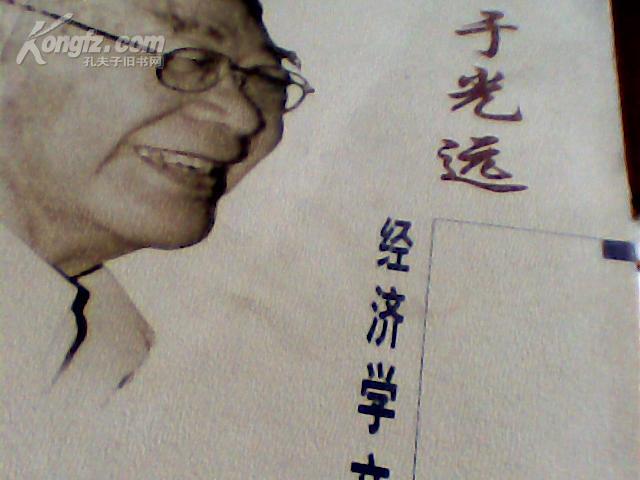 Kongfz.com
孔夫子旧书网
于光远
经济学